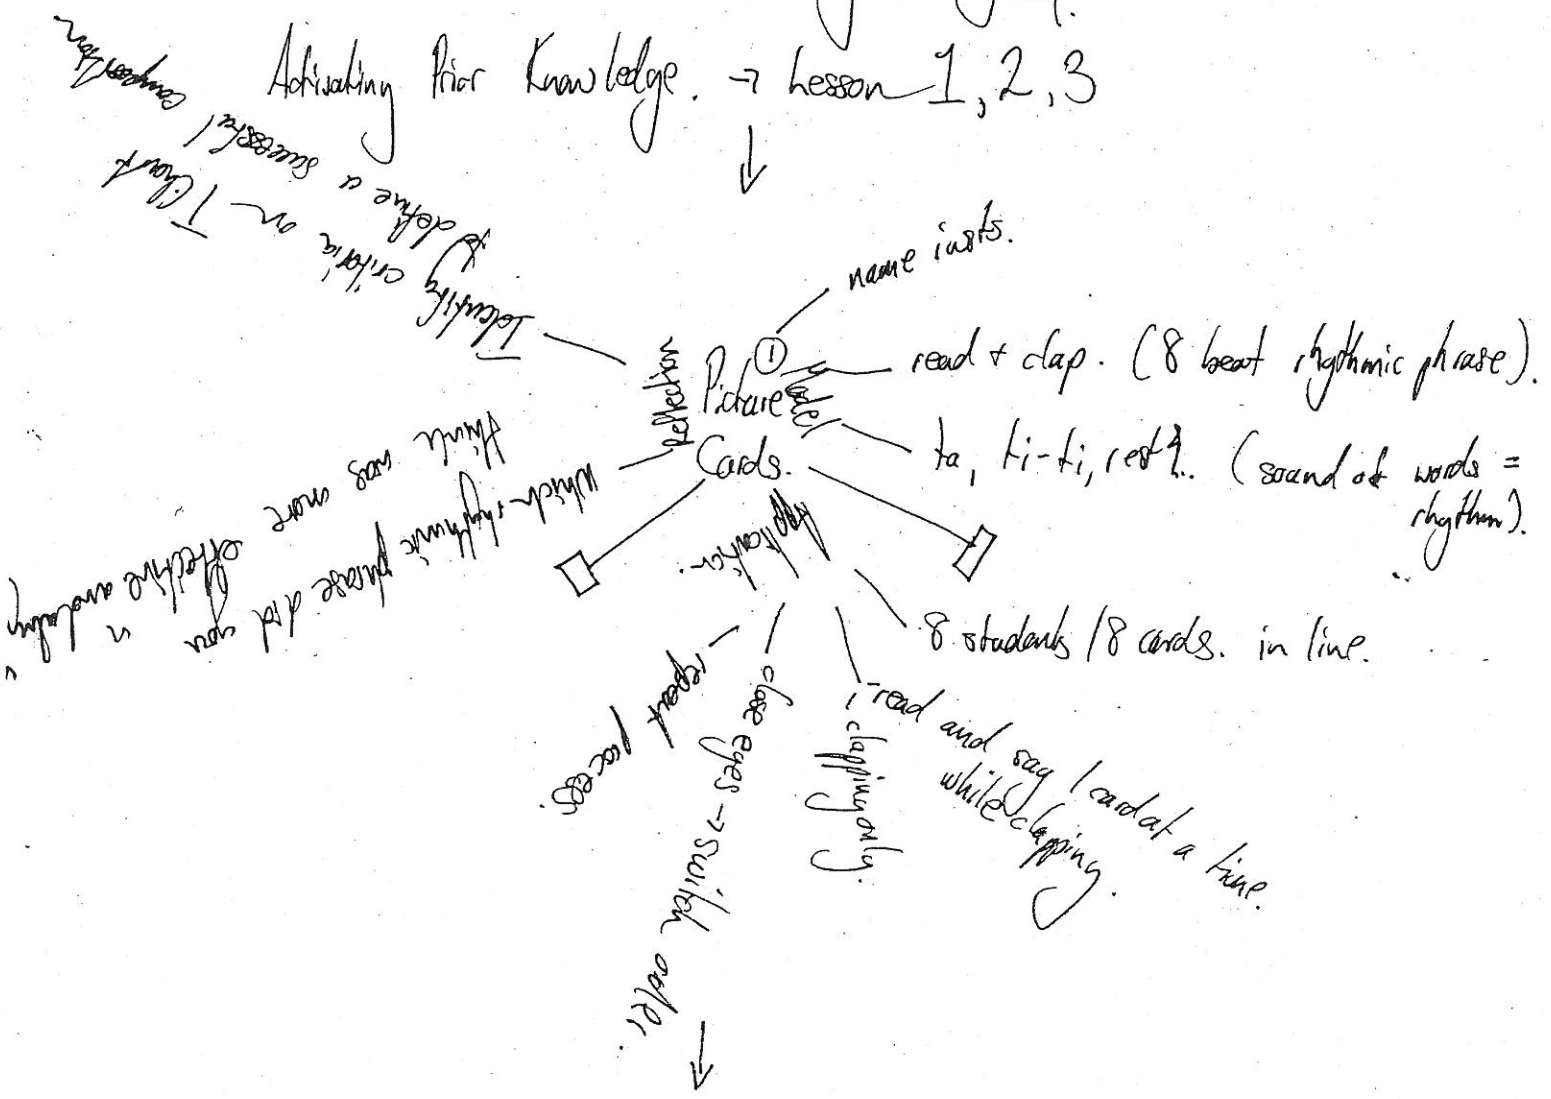 Activating Prior Knowledge. → Lesson 1, 2, 3
↓
Picture
Cards.
①
Model
name insts.
read + clap. (8 beat rhythmic phrase).
ta, ti-ti, rest 𝄽. (sound of words =
rhythm).
Application.
8 students / 8 cards. in line.
- read and say 1 card at a time.
while clapping.
clapping only.
close eyes → switch order.
↓
repeat process.
Reflection
which rhythmic phrase did you
think was more effective and why
Identify criteria on T Chart
to define a successful composition.